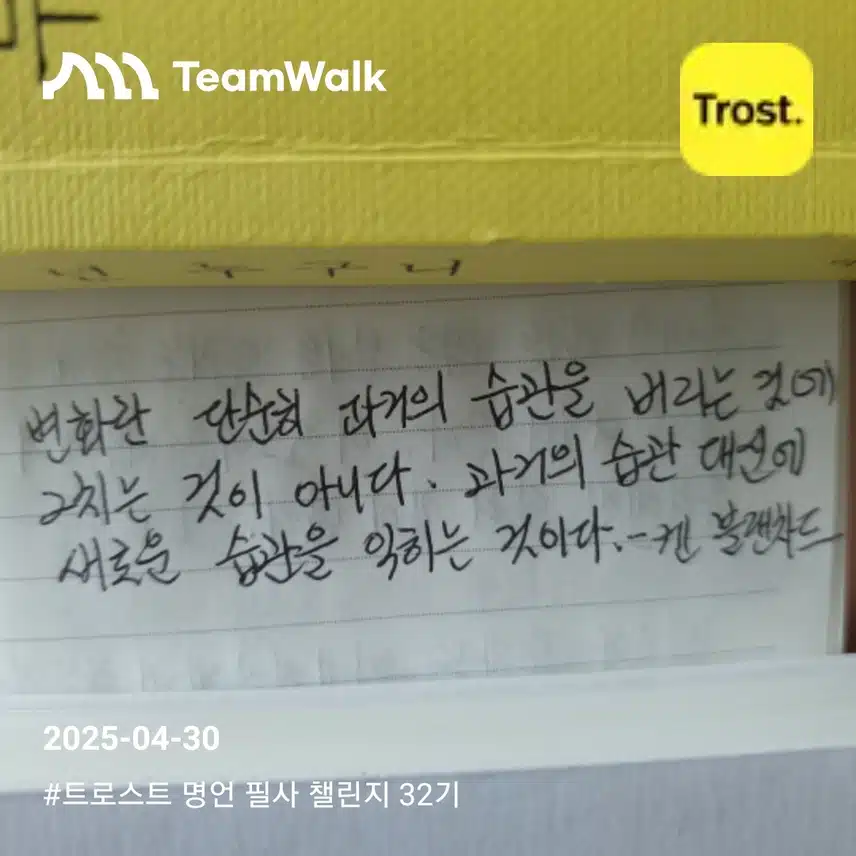 TeamWalk
Trost.
변화란 단순히 과거의 습관을 버리는 것에
그치는 것이 아니다. 과거의 습관 대신에
새로운 습관을 익히는 것이다. - 켄 블랜차드
2025-04-30
#트로스트 명언 필사 챌린지 32기